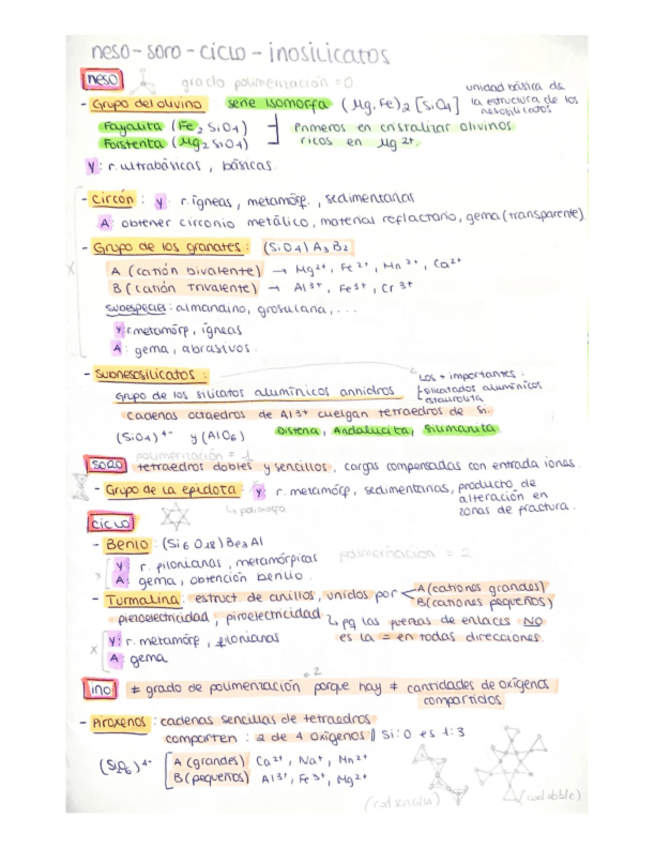 neso - soro - ciclo - inosilicatos
neso grado polimerización = 0
unidad básica de la estructura de los nesosilicatos
- Grupo del olivino : serie isomorfa (Mg, Fe)2 [SiO4]
Fayalita (Fe2 SiO4)
Forsterita (Mg2 SiO4)
Primeros en cristalizar olivinos
ricos en Mg 2+.
Y: r. ultrabásicas, básicas.
- Circón : Y: r. ígneas, metamórf., sedimentarias
A: obtener circonio metálico, material refractario, gema (transparente)
- Grupo de los granates: (SiO4) A3 B2
A (catión bivalente) → Mg2+, Fe2+, Mn2+, Ca2+
B (catión trivalente) → Al3+, Fe3+, Cr3+
subespecies: almandino, grosularia, ...
Y: r metamórf, ígneas
A: gema, abrasivos.
- Subnesosilicatos :
Los + importantes :
silicatados alumínicos
estaurolita
Grupo de los silicatos alumínicos anhidros
cadenas octaedros de Al3+ cuelgan tetraedros de Si.
(SiO4)4- y (AlO6) Distena, Andalucita, Silimanita.
polimerización = 1
soro tetraedros dobles y sencillos, cargas compensadas con entrada iones.
- Grupo de la epidota: Y: r. metamórf, sedimentarias, producto de
alteración en
zonas de fractura.
↳ polimorfo
ciclo
- Berilo : (Si6 O18) Be3 Al
Y: r. filonianas, metamórficas
A: gema, obtención berilio.
polimerización = 2
- Turmalina : estruct de anillos, unidos por A (cationes grandes)
B (cationes pequeños)
piezoelectricidad, piroelectricidad ↳ pq las fuerzas de enlaces NO
es la = en todas direcciones.
Y: r. metamórf, filonianas
A: gema
ino ≠ grado de polimerización porque hay ≠ cantidades de oxígenos
compartidos
- Piroxenos : cadenas sencillas de tetraedros
comparten : 2 de 4 oxígenos // Si:O es 1:3
A (grandes) Ca2+, Na+, Mn2+
B (pequeños) Al3+, Fe3+, Mg2+
(cad sencilla)
(cad doble)